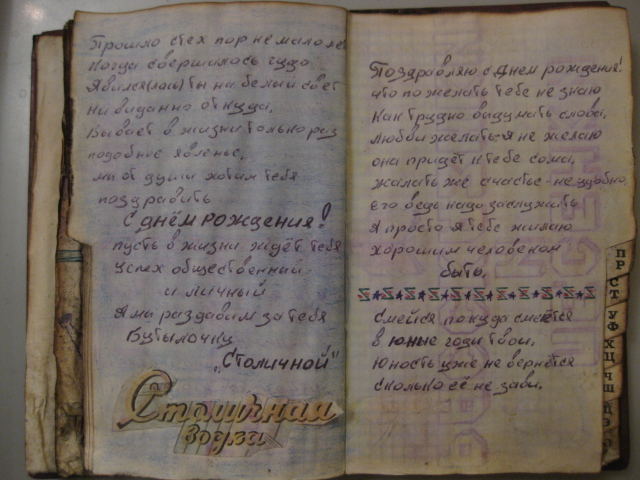 Прошло с тех пор не мало лет
Когда свершилось чудо
Явился(лась) ты на белый свет
Ни виданно откуда,
Бывает в жизни только раз
подобные явленье,
мы от души хотим тебя
поздравить
С днём рождения!
пусть в жизни ждёт тебя
Успех общественный
и личный
А мы раздавим за тебя
Бутылочку
"Столичной"
Столичная
водка
Поздравляю с Днем рождения!
что пожелать тебе не знаю
Как трудно выдумать слова,
Любви желать-я не желаю
она придёт к тебе сама,
жалать же счастье - не удобно,
его ведь надо заслужить
Я просто я тебе жилаю
хорошим человеком
быть,
Смейся покуда смеётся
в юные годы твои,
Юность уже не вернётся
сколько её не зави.
П Р
С Т
У Ф
Х Ц
Ч Ш